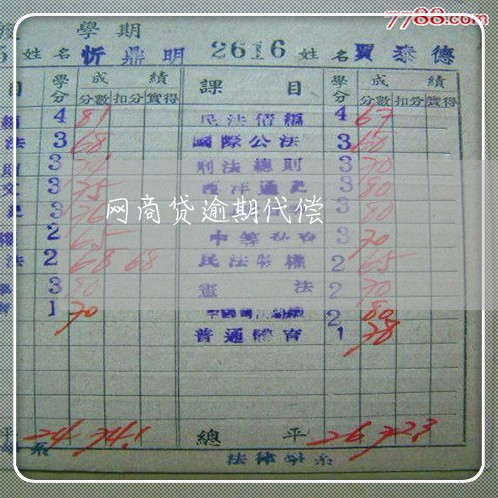 7788.com
學期
姓名 忻鼎明 2616 姓名 賈泰德
目 學分 成績 課目 學分 成績
分數 扣分 實得 分數 扣分 實得
4 81 民法債編 4 67
法 3 68 國際公法 3 60
3 刑法總則 3 70
文 3 75 西洋通史 3 80
3 3 80
網商貸逾期代偿
2 65 中等 3 70
法 2 68 68 民法物權 2 65
3 80 憲法 2 70
1 70 2 80
普通體育 1 78
平 24 74.1 總平 26 72.3
系 法律學系